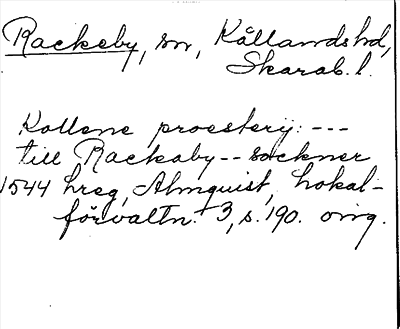 Rackeby, sn, Kållandshd,
Skarab. l.
Kollene proesterij: ---
till Rackaby -- sockner
1544 hreg, Almquist, Lokal-
förvaltn. 3, s. 190. orig.